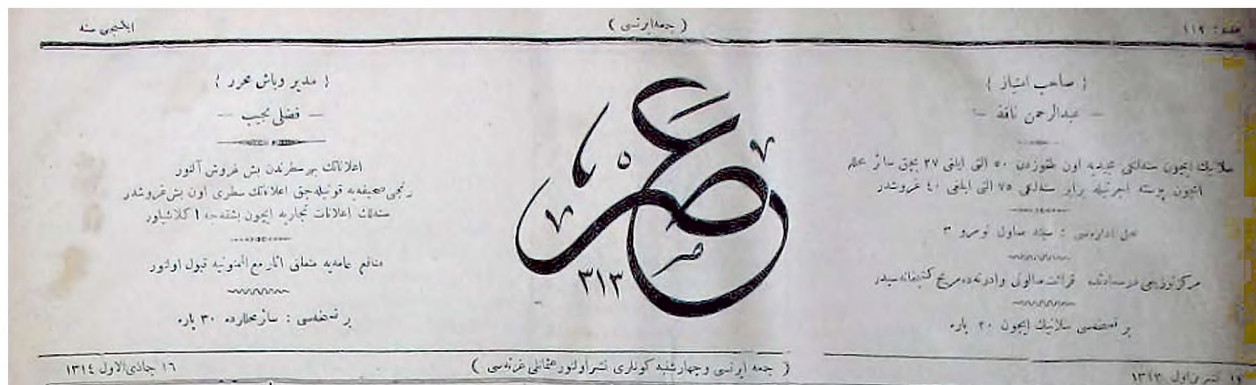 عدد : ١١٢
( جمعه ايرتسى )
ايكنجى سنه
{ صاحب امتياز }
— عبدالرحمن نافذ —
سلانيك ايچون سنه‌لكى مجيديه اون طقوزدن ٥٠ التى ايلغى ٢٧ بچق سائر محللر
ايچون پوسته اجرتيله برابر سنه‌لكى ٧٥ التى ايلغى ٤٠ غروشدر
محل اداره‌سى : نومرو ٣
مركز توزيعى درسعادتده قرائت صالونى وادرنه‌ده مريح كتبخانه‌سيدر
بر نسخه‌سى سلانيك ايچون ٢٠ پاره
عصر
٣١٣
{ مدير وباش محرر }
— فضلى نجيب —
اعلاناتك بهر سطرندن بش غروش آلنور
رنجى صحيفه‌يه قونيله‌جق اعلاناتك سطرى اون بش غروشدر
سنه‌لك اعلانات تجاريه ايچون بشقه‌جه اكلاشيلور
منافع عامه‌يه متعلق آثار مع الممنونيه قبول اولنور
بر نسخه‌سى : سائر محللرده ٣٠ پاره
تشرين اول ١٣١٢
( جمعه ايرتسى وچهارشنبه كونلرى نشر اولنور عثمانلى غزته‌سى )
١٦ جماذى الاول ١٣١٤